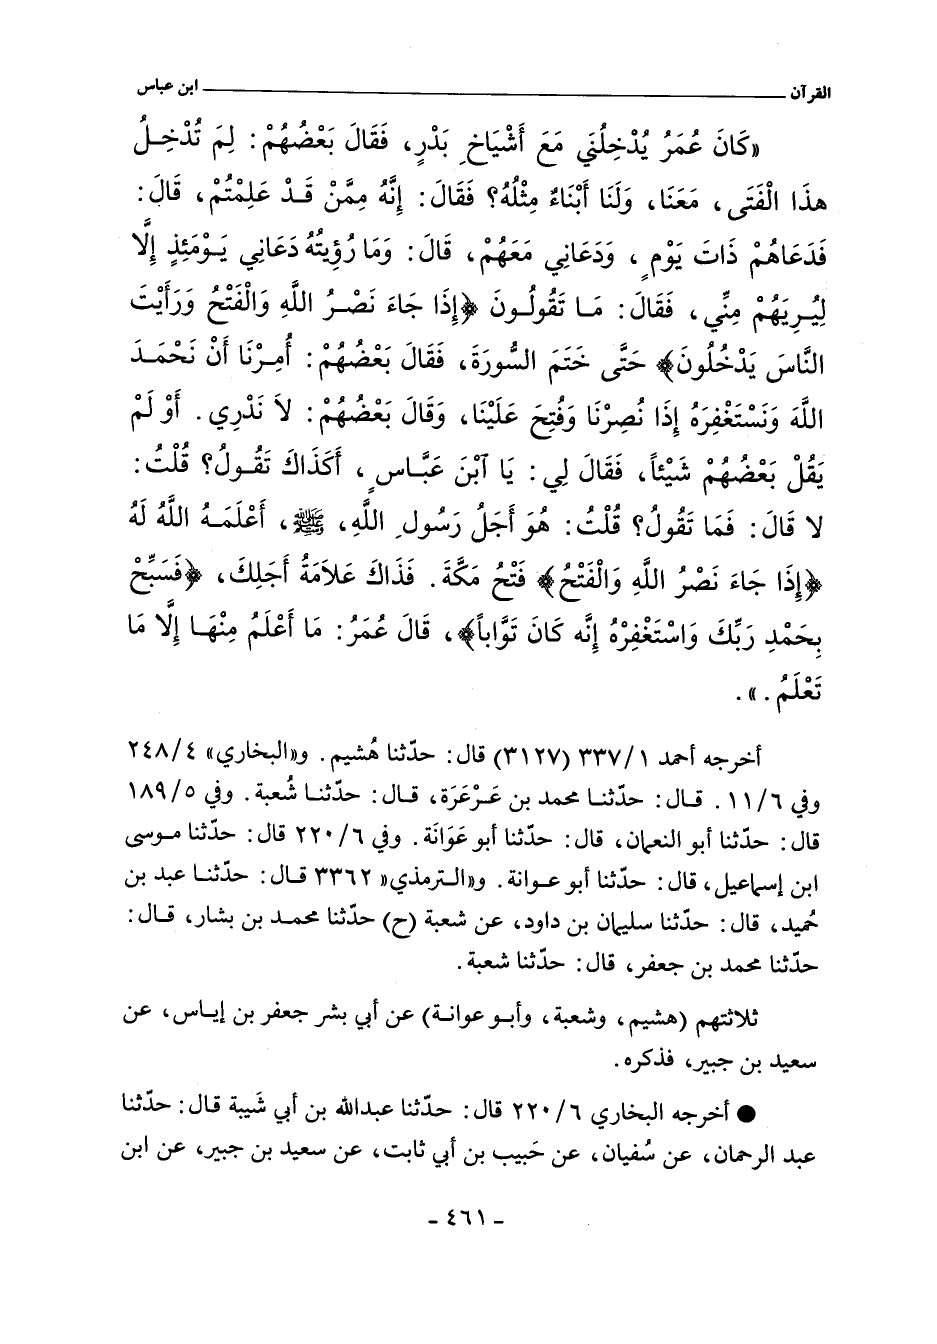 القرآن ـــــــــــــــــــــــــــــــــــــــــــــــــــــــــ ابن عباس
«كَانَ عُمَرُ يُدْخِلُنِي مَعَ أَشْيَاخِ بَدْرٍ، فَقَالَ بَعْضُهُمْ: لِمَ تُدْخِلُ
هذَا الْفَتَى، مَعَنَا، وَلَنَا أَبْنَاءٌ مِثْلُهُ؟ فَقَالَ: إِنَّهُ مِمَّنْ قَدْ عَلِمْتُمْ، قَالَ:
فَدَعَاهُمْ ذَاتَ يَوْمٍ، وَدَعَانِي مَعَهُمْ، قَالَ: وَمَا رُؤِيتُهُ دَعَانِي يَوْمَئِذٍ إِلَّا
لِيُرِيَهُمْ مِنِّي، فَقَالَ: مَا تَقُولُونَ ﴿إِذَا جَاءَ نَصْرُ اللَّهِ وَالْفَتْحُ وَرَأَيْتَ
النَّاسَ يَدْخُلُونَ﴾ حَتَّى خَتَمَ السُّورَةَ، فَقَالَ بَعْضُهُمْ: أُمِرْنَا أَنْ نَحْمَدَ
اللَّهَ وَنَسْتَغْفِرَهُ إِذَا نُصِرْنَا وَفُتِحَ عَلَيْنَا، وَقَالَ بَعْضُهُمْ: لاَ نَدْرِي. أَوْ لَمْ
يَقُلْ بَعْضُهُمْ شَيْئاً، فَقَالَ لِي: يَا آبْنَ عَبَّاسٍ، أَكَذَاكَ تَقُولُ؟ قُلْتُ:
لا قَالَ: فَمَا تَقُولُ؟ قُلْتُ: هُوَ أَجَلُ رَسُولِ اللَّهِ، ﷺ، أَعْلَمَهُ اللَّهُ لَهُ
﴿إِذَا جَاءَ نَصْرُ اللَّهِ وَالْفَتْحُ﴾ فَتْحُ مَكَّةَ. فَذَاكَ عَلاَمَةُ أَجَلِكَ، ﴿فَسَبِّحْ
بِحَمْدِ رَبِّكَ وَاسْتَغْفِرْهُ إِنَّه كَانَ تَوَّاباً﴾، قَالَ عُمَرُ: مَا أَعْلَمُ مِنْهَا إِلَّا مَا
تَعْلَمُ.».
أخرجه أحمد ١/٣٣٧ (٣١٢٧) قال: حدّثنا هُشيم. و«البخاري» ٤/٢٤٨
وفي ٦/١١. قال: حدّثنا محمد بن عَرْعَرَة، قال: حدّثنا شُعبة. وفي ٥/١٨٩
قال: حدّثنا أبو النعمان، قال: حدّثنا أبو عَوَانَة. وفي ٦/٢٢٠ قال: حدّثنا موسى
ابن إسماعيل، قال: حدّثنا أبو عوانة. و«الترمذي» ٣٣٦٢ قال: حدّثنا عبد بن
حُميد، قال: حدّثنا سليمان بن داود، عن شعبة (ح) حدّثنا محمد بن بشار، قال:
حدّثنا محمد بن جعفر، قال: حدّثنا شعبة.
ثلاثتهم (هشيم، وشعبة، وأبو عوانة) عن أبي بشر جعفر بن إياس، عن
سعيد بن جبير، فذكره.
● أخرجه البخاري ٦/٢٢٠ قال: حدّثنا عبدالله بن أبي شَيبة قال: حدّثنا
عبد الرحمان، عن سُفيان، عن حَبيب بن أبي ثابت، عن سعيد بن جبير، عن ابن
- ٤٦١ -